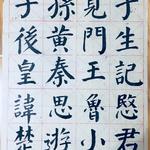 生記愍君
見門王魯小
孫黄秦思遊
子後皇諱楚